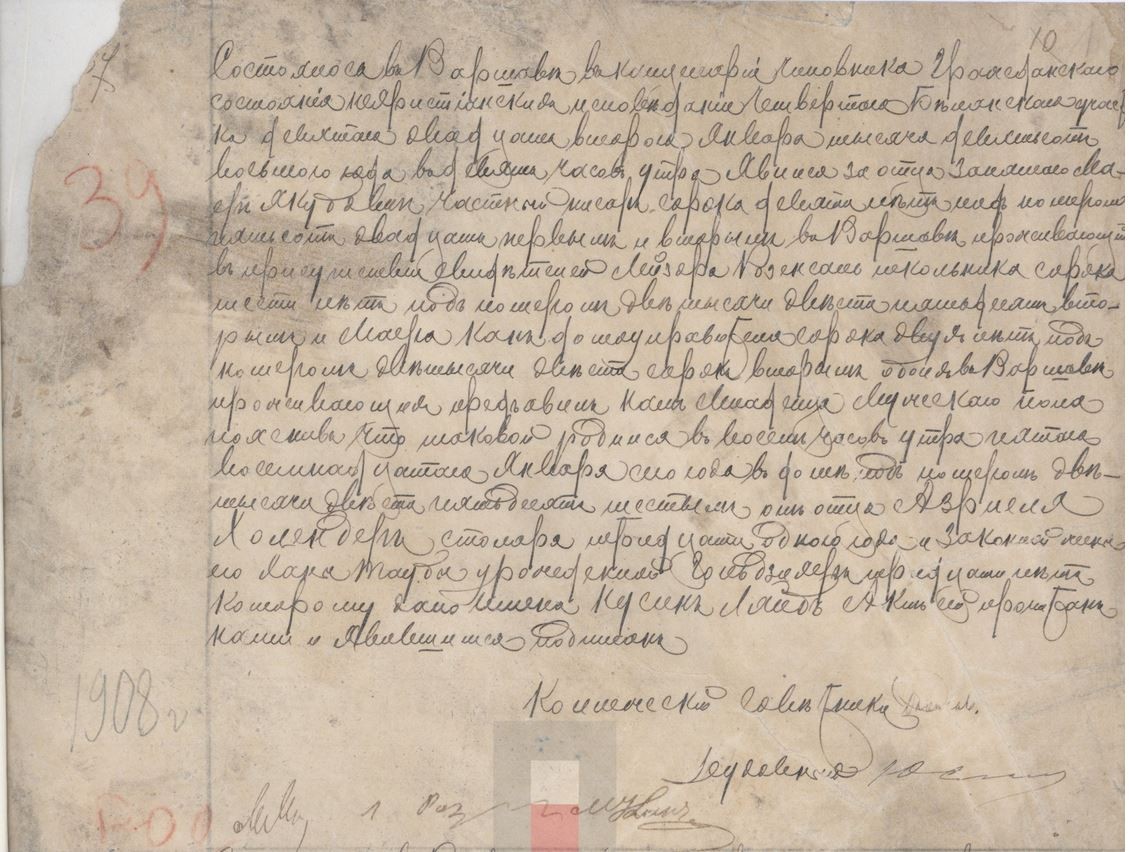 10
Состоялось въ Варшавѣ въ канцеляріи Чиновника Гражданскаго
состоянія нехристіанскихъ исповѣданій четвертаго Бѣлянскаго участ
ка девятаго двадцать втораго Января тысяча девятьсотъ
восьмого года въ девять часовъ утра Явился за отца Запаснаго Ма-
еръ Якубовичъ частный писарь сорока девяти лѣтъ подъ номеромъ
пятьсотъ двадцать первымъ и вторымъ въ Варшавѣ проживающій
въ присутствіи свидѣтелей Лейзора Розенсаль школьника сорока
шести лѣтъ подъ номеромъ двѣ тысячи двѣсти пятьдесятъ вто-
рымъ и Маера Канъ домоуправителя сорока двухъ лѣтъ подъ
номеромъ двѣ тысячи двѣсти сорокъ вторымъ обоихъ въ Варшавѣ
проживающихъ предъявилъ намъ Младенца Мужескаго пола
пояснивъ что таковой родился въ восемь часовъ утра пятаго
восемнадцатаго Января сего года въ домѣ подъ номеромъ двѣ-
тысячи двѣсти пятьдесятъ шестымъ отъ отца Азріеля
Холендеръ столяра тридцати одного года и Законной жены
его Ханы Таубы урожденной Гольдзилеръ тридцати лѣтъ
которому дано имена Кусинъ Лейбъ Актъ сей прочитанъ
нами и Явившимися подписанъ
Коллежскій Совѣтникъ
39
1908 г